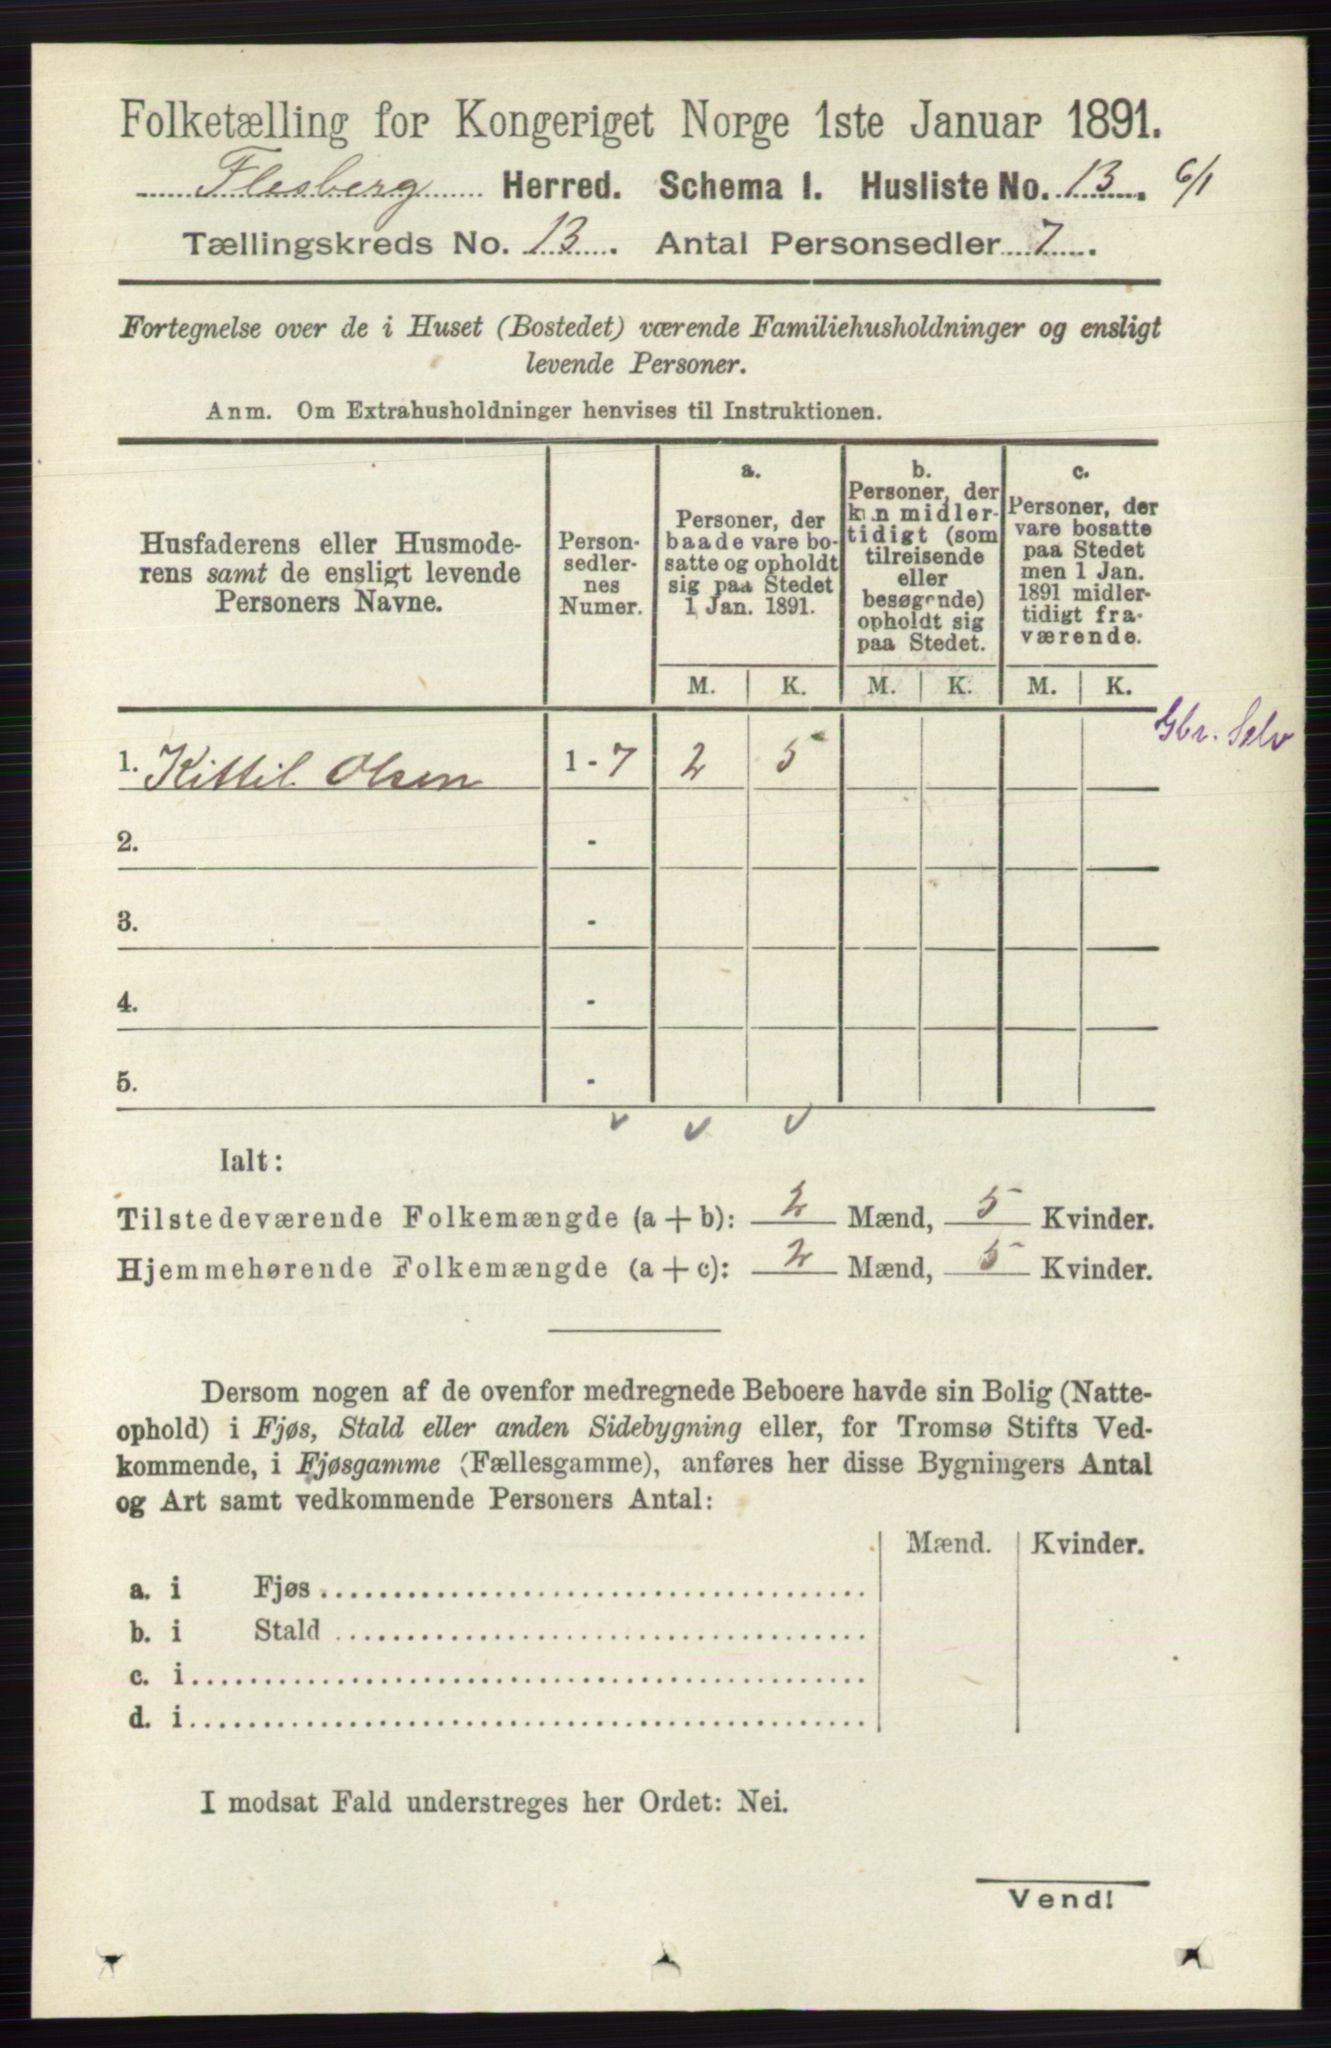 Folketælling for Kongeriget Norge 1ste Januar 1891.
Flesberg Herred. Schema 1. Husliste No. 13. 6/1
Tællingskreds No. 13. Antal Personsedler 7.
Fortegnelse over de i Huset (Bostedet) værende Familiehusholdninger og ensligt
levende Personer.
Anm. Om Extrahusholdninger henvises til Instruktionen.
Husfaderens eller Husmode-
rens samt de ensligt levende
Personers Navne.
Person-
sedler-
nes
Numer.
a.
Personer, der
baade vare bo-
satte og opholdt
sig paa Stedet
1 Jan. 1891.
b.
Personer, der
kun midler-
tidigt (som
tilreisende
eller
besøgende)
opholdt sig
paa Stedet.
c.
Personer, der
vare bosatte
paa Stedet
men 1 Jan.
1891 midler-
tidigt fra-
værende.
M. K. M. K. M. K.
1. Kittil Olsen 1-7 2 5 Gbr. Selv
2. -
3. -
4. -
5. -
Ialt:
Tilstedeværende Folkemængde (a + b): 2 Mænd, 5 Kvinder.
Hjemmehørende Folkemængde (a + c): 2 Mænd, 5 Kvinder.
Dersom nogen af de ovenfor medregnede Beboere havde sin Bolig (Natte-
ophold) i Fjøs, Stald eller anden Sidebygning eller, for Tromsø Stifts Ved-
kommende, i Fjøsgamme (Fællesgamme), anføres her disse Bygningers Antal
og Art samt vedkommende Personers Antal:
Mænd. Kvinder.
a. i Fjøs
b. i Stald
c. i
d. i
I modsat Fald understreges her Ordet: Nei.
Vend!